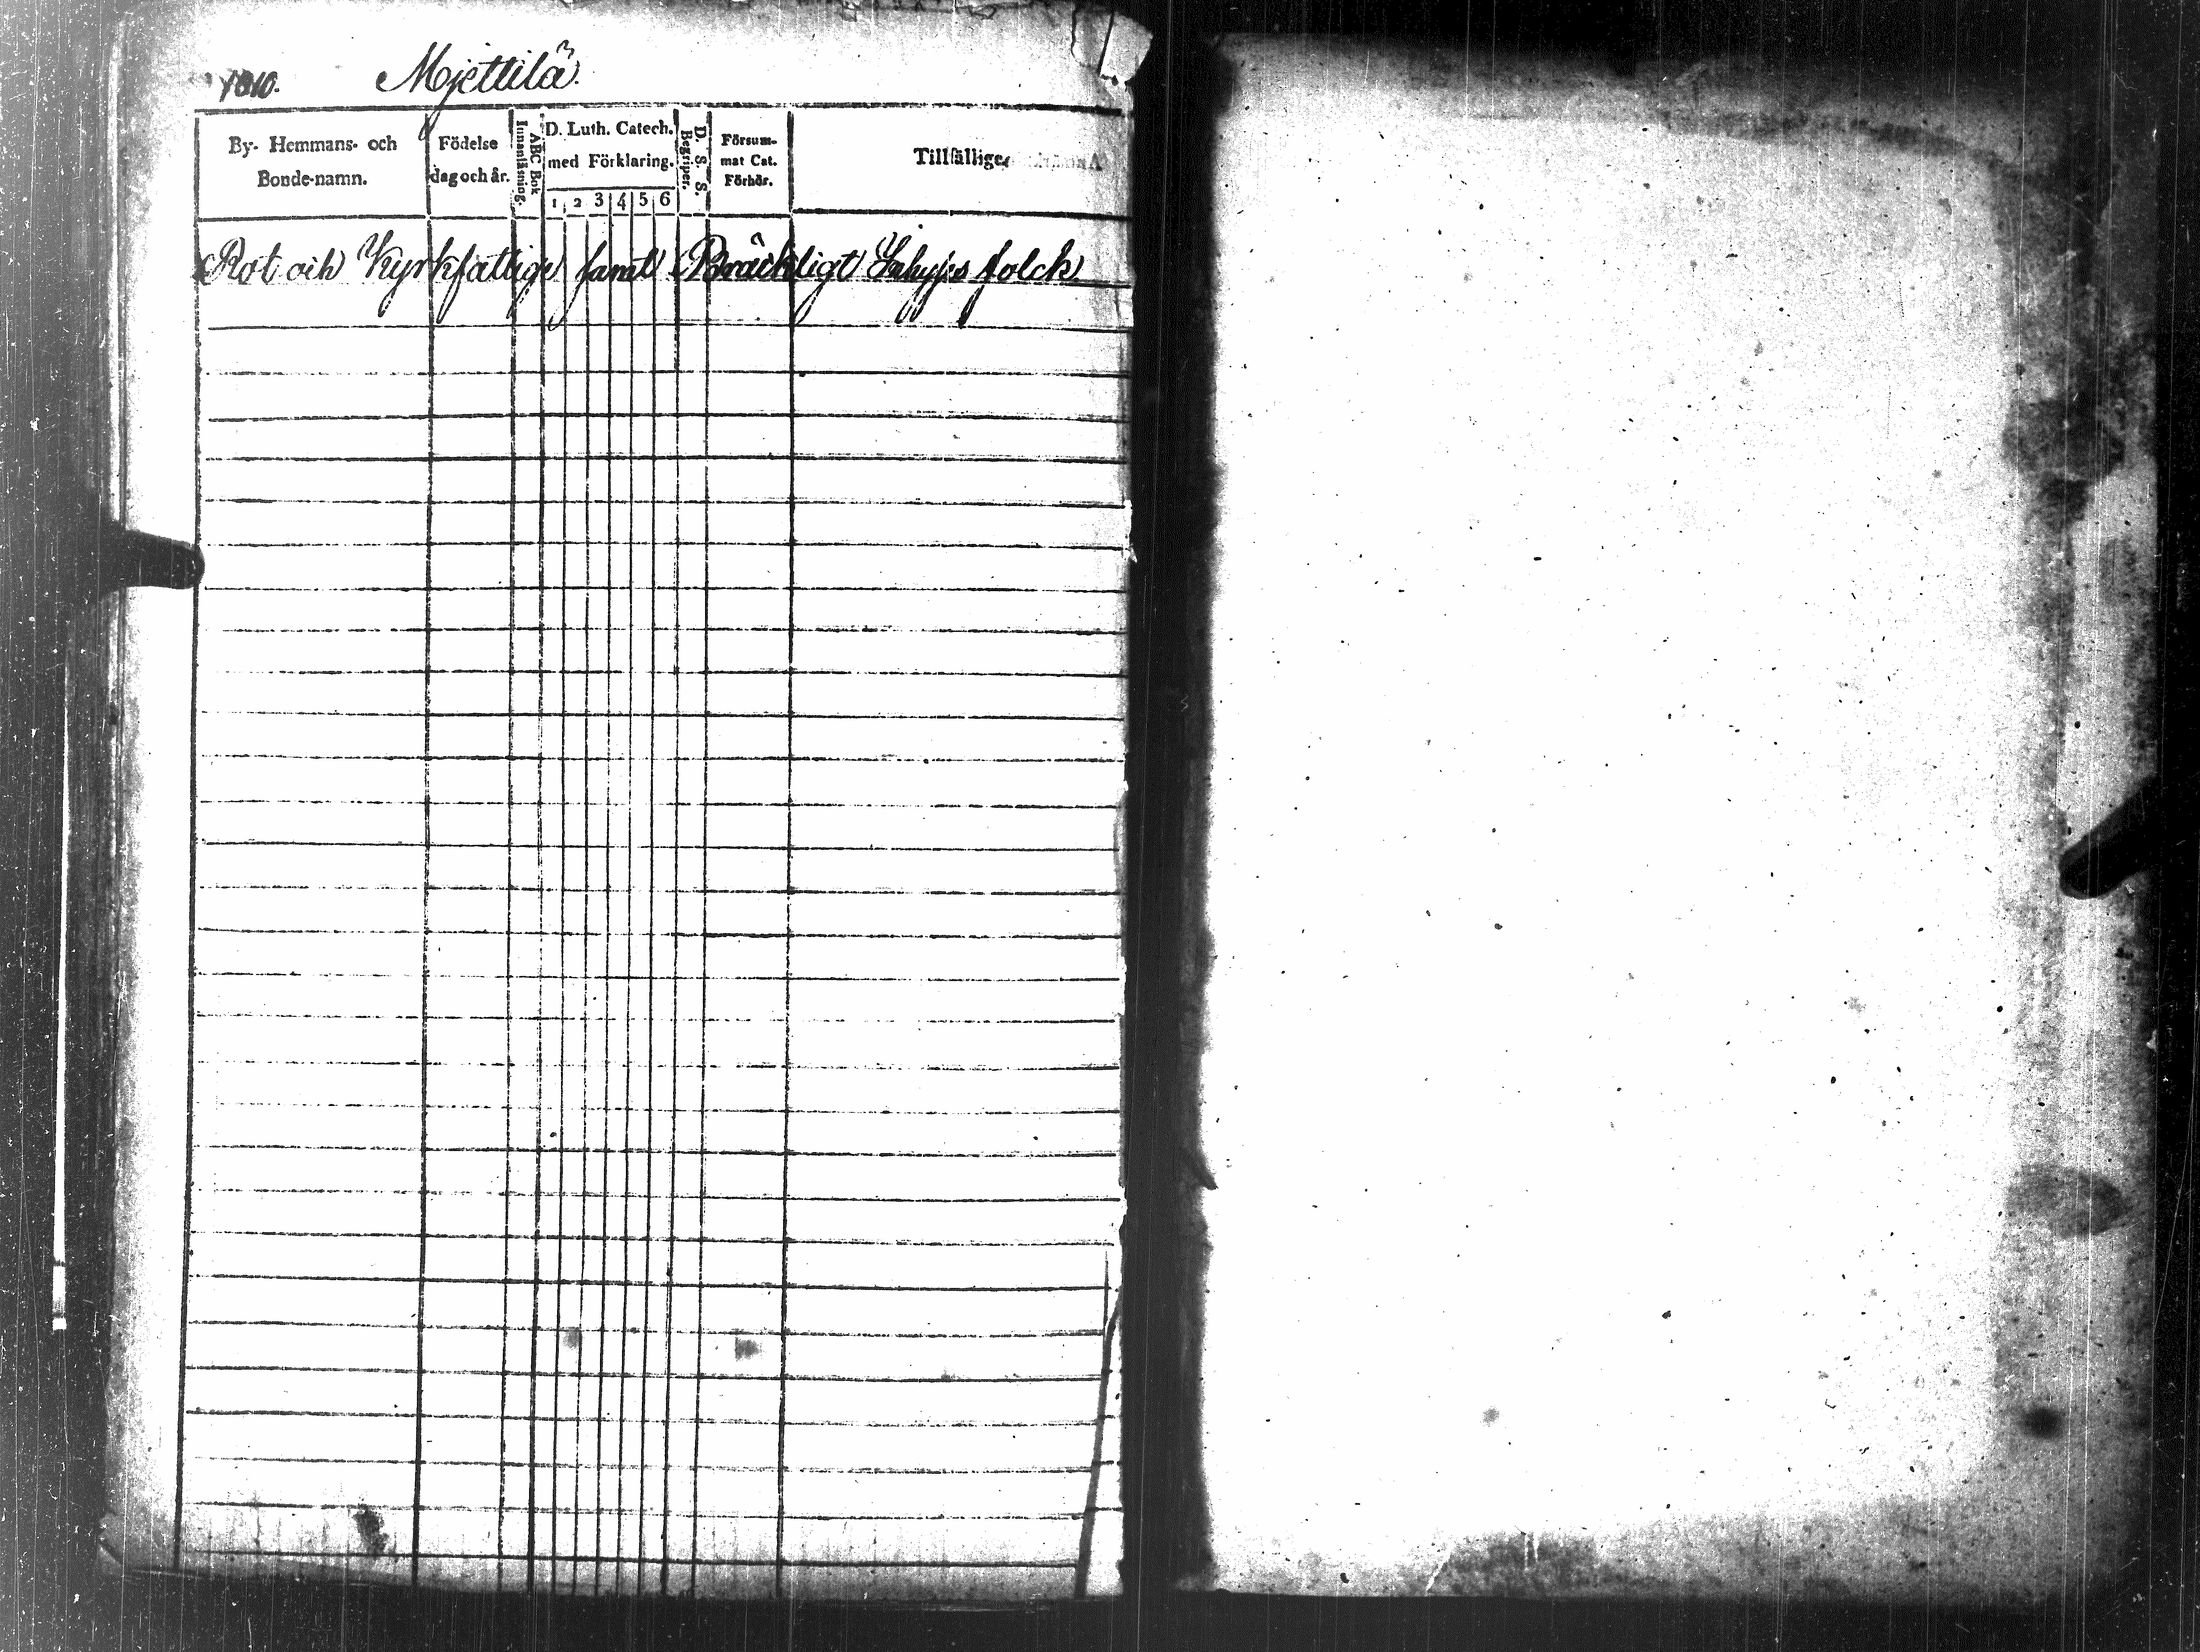 1810. Mjettilä.
By- Hemmans- och
Bonde-namn.
Födelse
dag och år.
ABC Bok
Innanläsning.
D. Luth. Catech.
med Förklaring.
1 2 3 4 5 6
D. S. S.
Begriper.
Försum-
mat Cat.
Förhör.
Tillfällige
Rot och Kyrkfattige samt Bräckligt folck